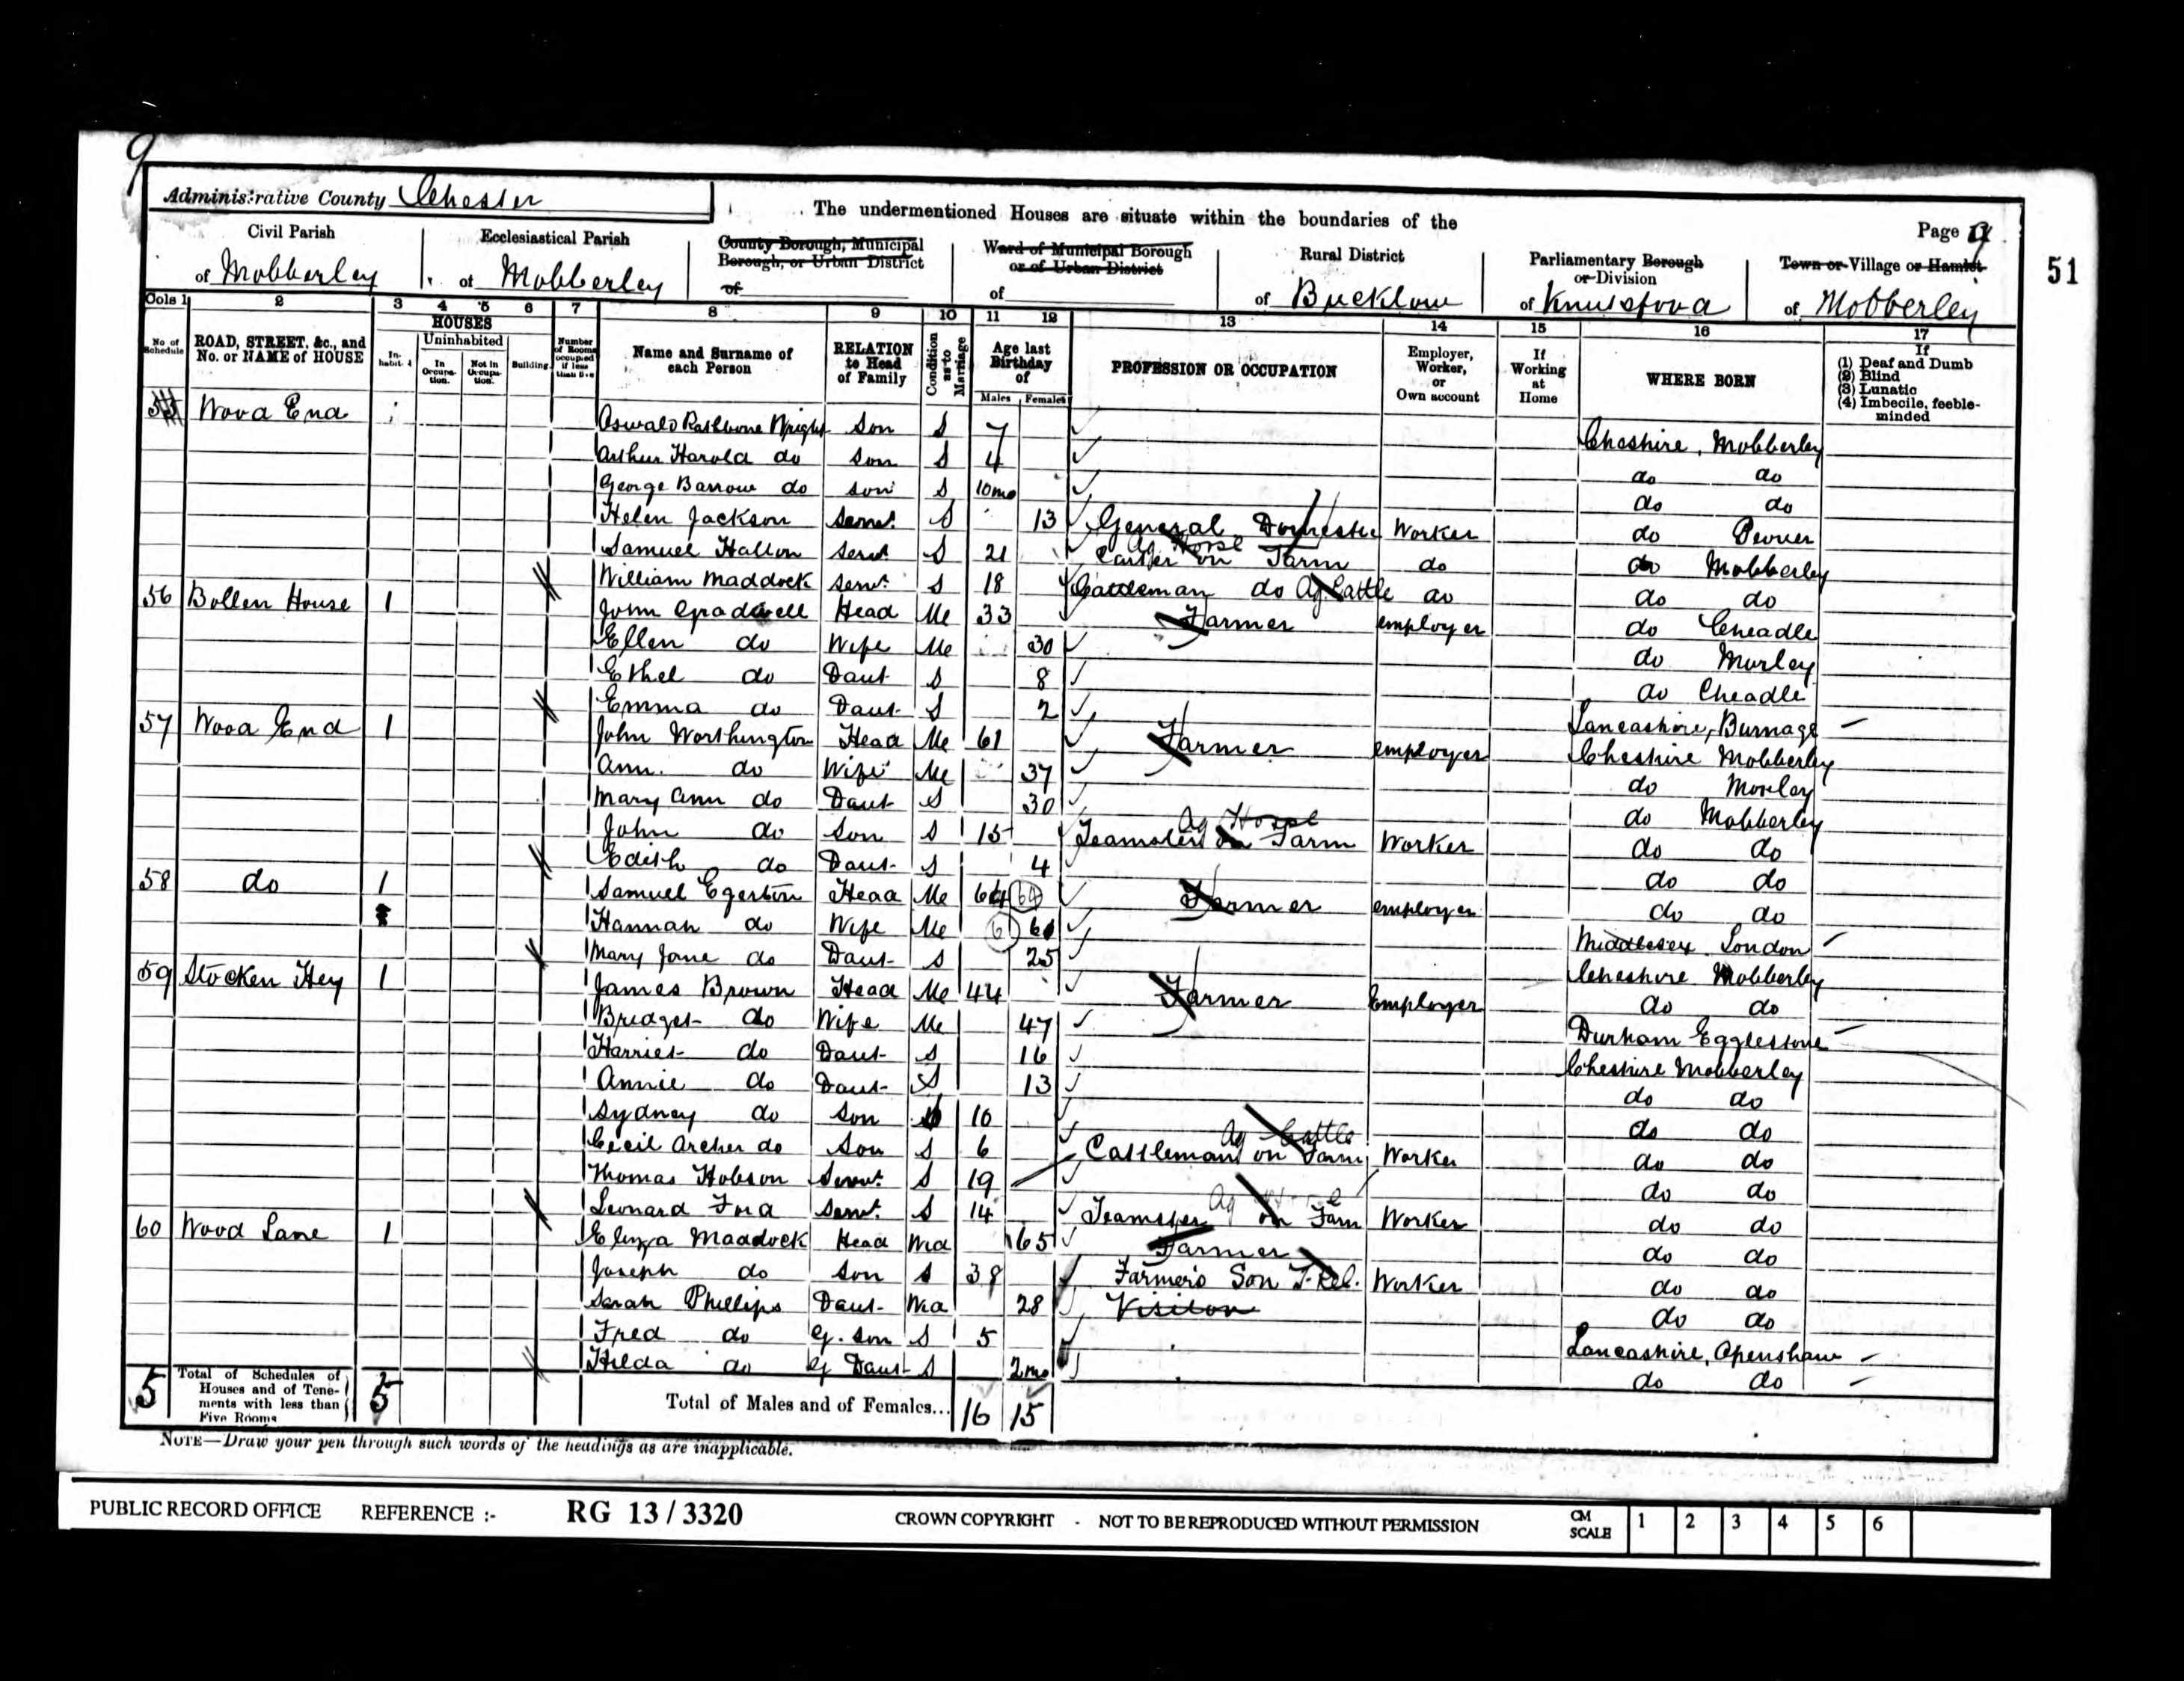 9
Administrative County Chester
The undermentioned Houses are situate within the boundaries of the
Page 9
51
Civil Parish of Mobberley
Ecclesiastical Parish of Mobberley
County Borough, Municipal Borough, or Urban District of
Ward of Municipal Borough or of Urban District of
Rural District of Bucklow
Parliamentary Borough or Division of Knutsford
Town or Village or Hamlet of Mobberley
Cols 1 2 3 4 5 6 7 8 9 10 11 12 13 14 15 16 17
No of Schedule
ROAD, STREET, &c., and No. or NAME of HOUSE
HOUSES
Inhabited
Uninhabited
In Occupation.
Not in Occupation.
Building
Number of Rooms occupied if less than five
Name and Surname of each Person
RELATION to Head of Family
Condition as to Marriage
Age last Birthday of
Males Females
PROFESSION OR OCCUPATION
Employer, Worker, or Own account
If Working at Home
WHERE BORN
If
(1) Deaf and Dumb
(2) Blind
(3) Lunatic
(4) Imbecile, feeble-minded
55 Wood End Oswald Rathbone Wright Son S 7 Cheshire, Mobberley
Arthur Harold do Son S 4 do do
George Barrow do Son S 10mo do do
Helen Jackson Servt. S 13 General Domestic Worker do Peover
Samuel Hallon Servt S 21 Carter on Farm Ag Horse do do Mobberley
William Maddock Servt. S 18 Cattleman do Ag Cattle do do do
56 Bollen House 1 John Gradwell Head M 33 Farmer employer do Cheadle
Ellen do Wife M 30 do Morley
Ethel do Daut S 8 do Cheadle
Emma do Daut S 2 Lancashire, Burnage
57 Wood End 1 John Worthington Head M 61 Farmer employer Cheshire Mobberley
Ann do Wife M 37 do Morley
Mary Ann do Daut S 30 do Mobberley
John do Son S 15 Teamster on Farm Ag Horse Worker do do
Edith do Daut S 4 do do
58 do 1 Samuel Egerton Head M 64 64 Farmer employer do do
Hannah do Wife M 61 Middlesex London
Mary Jane do Daut S 25 Cheshire Mobberley
59 Stocken Hey 1 James Brown Head M 44 Farmer Employer do do
Bridget do Wife M 47 Durham Egglestone
Harriet do Daut S 16 Cheshire Mobberley
Annie do Daut S 13 do do
Sydney do Son S 10 do do
Cecil Archer do Son S 6 do do
Thomas Hobson Servt. S 19 Cattleman on Farm Ag Cattle Worker do do
Leonard Ford Servt. S 14 Teamster on Farm Ag Horse Worker do do
60 Wood Lane 1 Eliza Maddock Head Wid 65 Farmer do do
Joseph do Son S 38 Farmer's Son F. Rel. Worker do do
Sarah Phillips Daut Wid 28 Visitor do do
Fred do G. Son S 5 Lancashire, Openshaw
Hilda do G Daut S 2mo do do
5 Total of Schedules of Houses and of Tenements with less than Five Rooms 5
Total of Males and of Females... 16 15
NOTE—Draw your pen through such words of the headings as are inapplicable.
PUBLIC RECORD OFFICE REFERENCE :- RG 13 / 3320 CROWN COPYRIGHT - NOT TO BE REPRODUCED WITHOUT PERMISSION CM SCALE 1 2 3 4 5 6